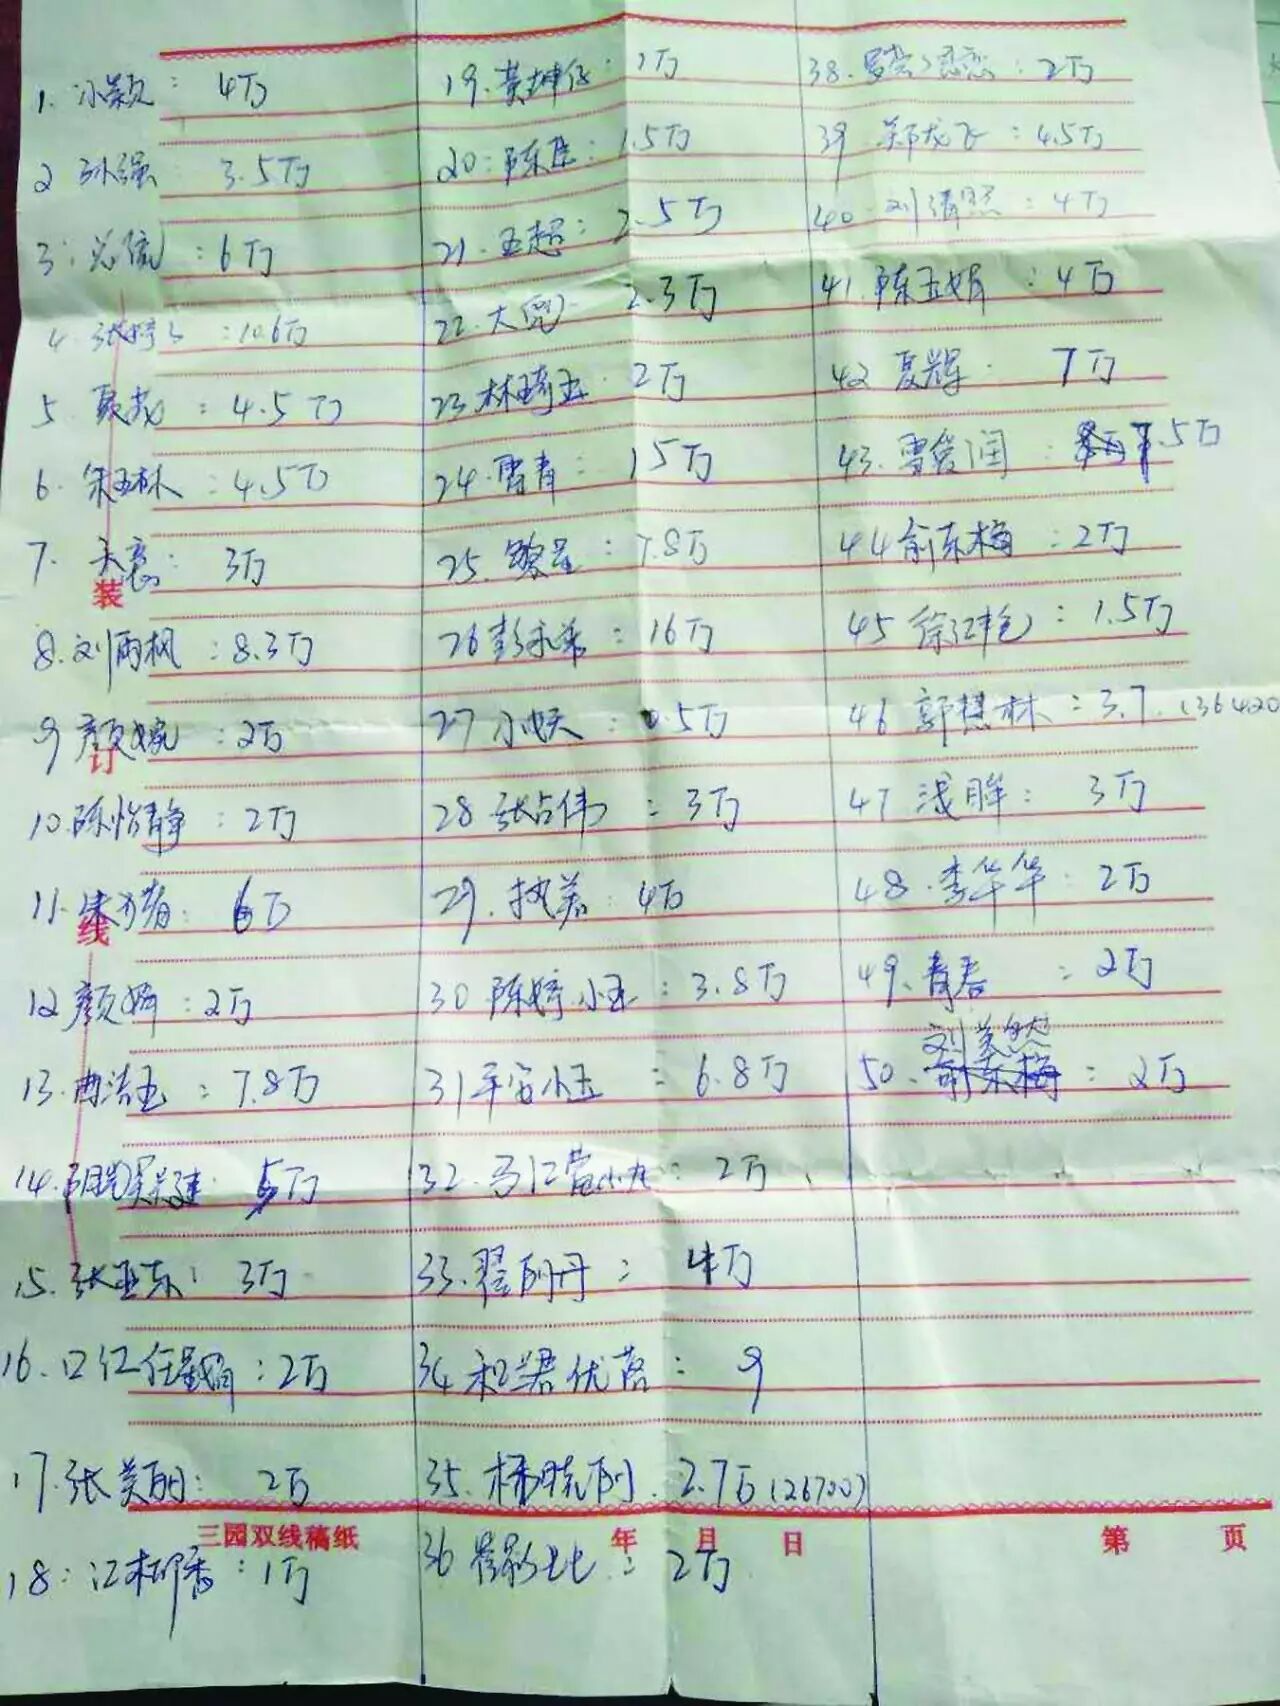 1. 小颖: 4万
2 孙强 3.5万
3: : 6万
4. 张婷 : 10.6万
5. 聂龙 : 4.5万
6. 朱玉林 : 4.5万
7. 天意: 3万
装
8. 刘雨枫 : 8.3万
9 颜婉 : 2万
订
10. 陈怡静 : 2万
11. 朱 : 6万
线
12 颜婷 : 2万
13. 曲洁玉 : 7.8万
14. 5万
15. 张亚东: 3万
16. 口红任 : 2万
17. 张美丽: 2万
18: 江柳香: 1万
19. 黄坤 : 1万
20: 陈 : 1.5万
21. 王超: 2.5万
22. 大 2.3万
23 林琦玉. 2万
24. 雷青: 15万
25. 黎星: 7.8万
26 彭 : 16万
27 小 : 0.5万
28 张占伟 : 3万
29. 执着: 4万
30 陈婷小玉: 3.8万
31 平安小玉 : 6.8万
32. 小 : 2万
33. 翟丽丹: 4万
34 和美君优蓓: 9
35. 杨晓丽. 2.7万(26700)
36 七七: 2万
38. : 2万
39. 郑龙飞: 4.5万
40. 刘清照: 4万
41. 陈玉娟: 4万
42 夏辉. 7万
43. 雷爱润: .5万
44 俞东梅: 2万
45 徐红艳: 1.5万
46 郭慧林: 3.7. (36420
47 浅眸: 3万
48. 李华华: 2万
49. 青春 : 2万
刘美然
50. 俞东梅: 2万
三园双线稿纸 年 月 日 第 页